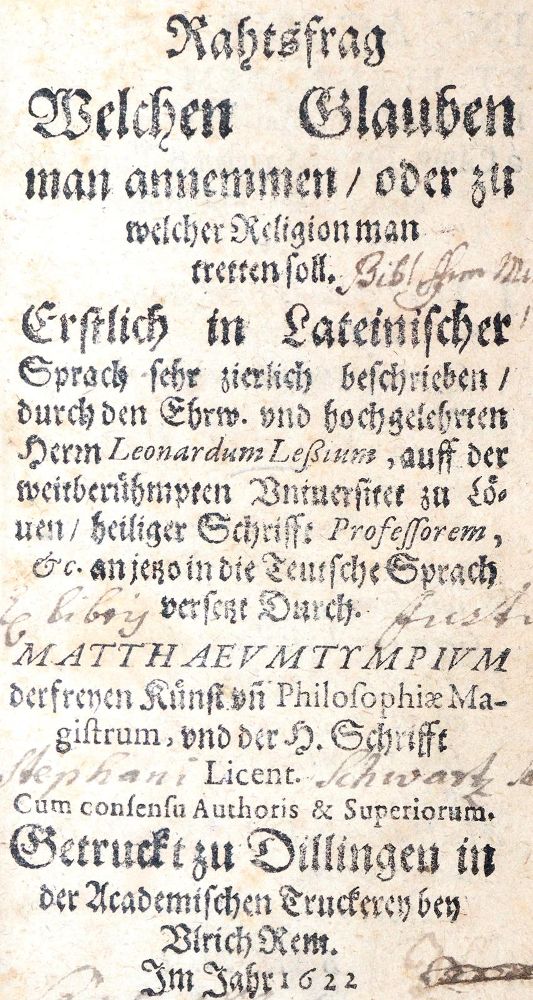 Rahtsfrag
Welchen Glauben
man annemmen / oder zu
welcher Religion man
tretten soll.
Erstlich in Lateinischer
Sprach sehr zierlich beschrieben /
durch den Ehrw. vnd hochgelehrten
Herrn Leonardum Leßium, auff der
weitberühmpten Vniuersitet zu Lö-
uen / heiliger Schrifft Professorem,
&c. an jetzo in die Teutsche Sprach
Ex libris versetzt Durch.
MATTHAEVM TYMPIVM
der freyen Künst vñ Philosophiæ Ma-
gistrum, vnd der H. Schrifft
Stephani Licent. Schwartz
Cum consensu Authoris & Superiorum.
Getruckt zu Dillingen in
der Academischen Truckerey bey
Vlrich Rem.
Im Jahr 1622